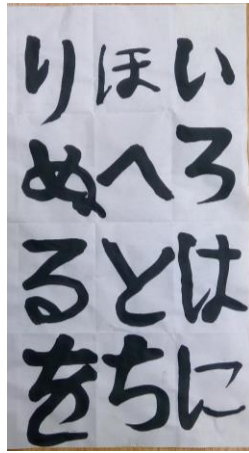 いろはに
ほへとち
りぬるを